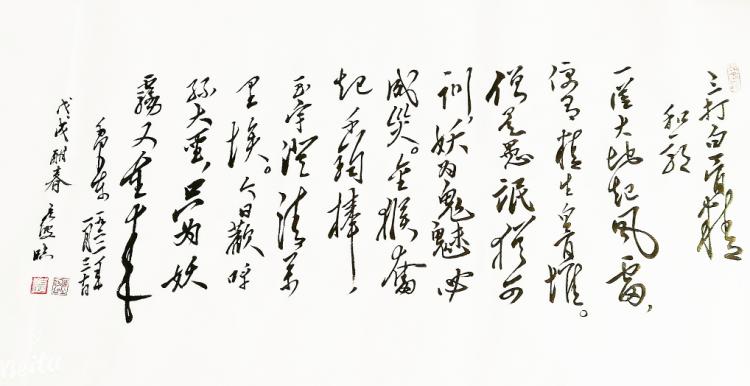 三打白骨精
和郭
一從大地起风雷，
便有精生白骨堆。
僧是愚氓犹可
训，妖为鬼魅必
成災。金猴奋
起千钧棒，
玉宇澄清万
里埃。今日歡呼
孫大圣，只为妖
霧又重来
毛泽东 一九六一年
戊戌 春
Meitu